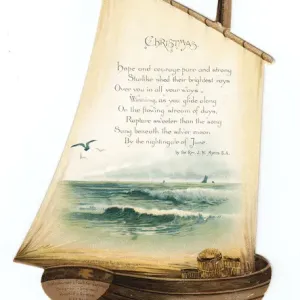 CHRISTMAS
Hope and courage pure and strong
Starlike shed their brightest rays
Over you in all your ways.
Winning, as you glide along
On the flowing stream of days,
Rapture sweeter than the song
Sung beneath the silver moon
By the nightingale of June.
by the Rev.